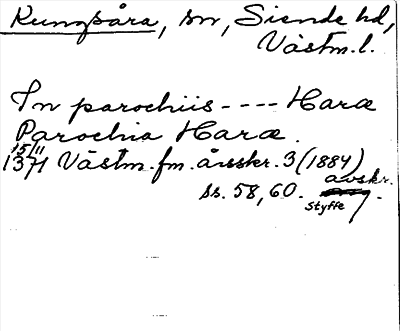 Kungsåra, sn, Siende hd,
Västm. l.
In parochiis ---- Haræ
Parochia Haræ.
15/11
1371 Västm. fm. årsskr. 3 (1884)
avskr.
ss. 58, 60.
Styffe